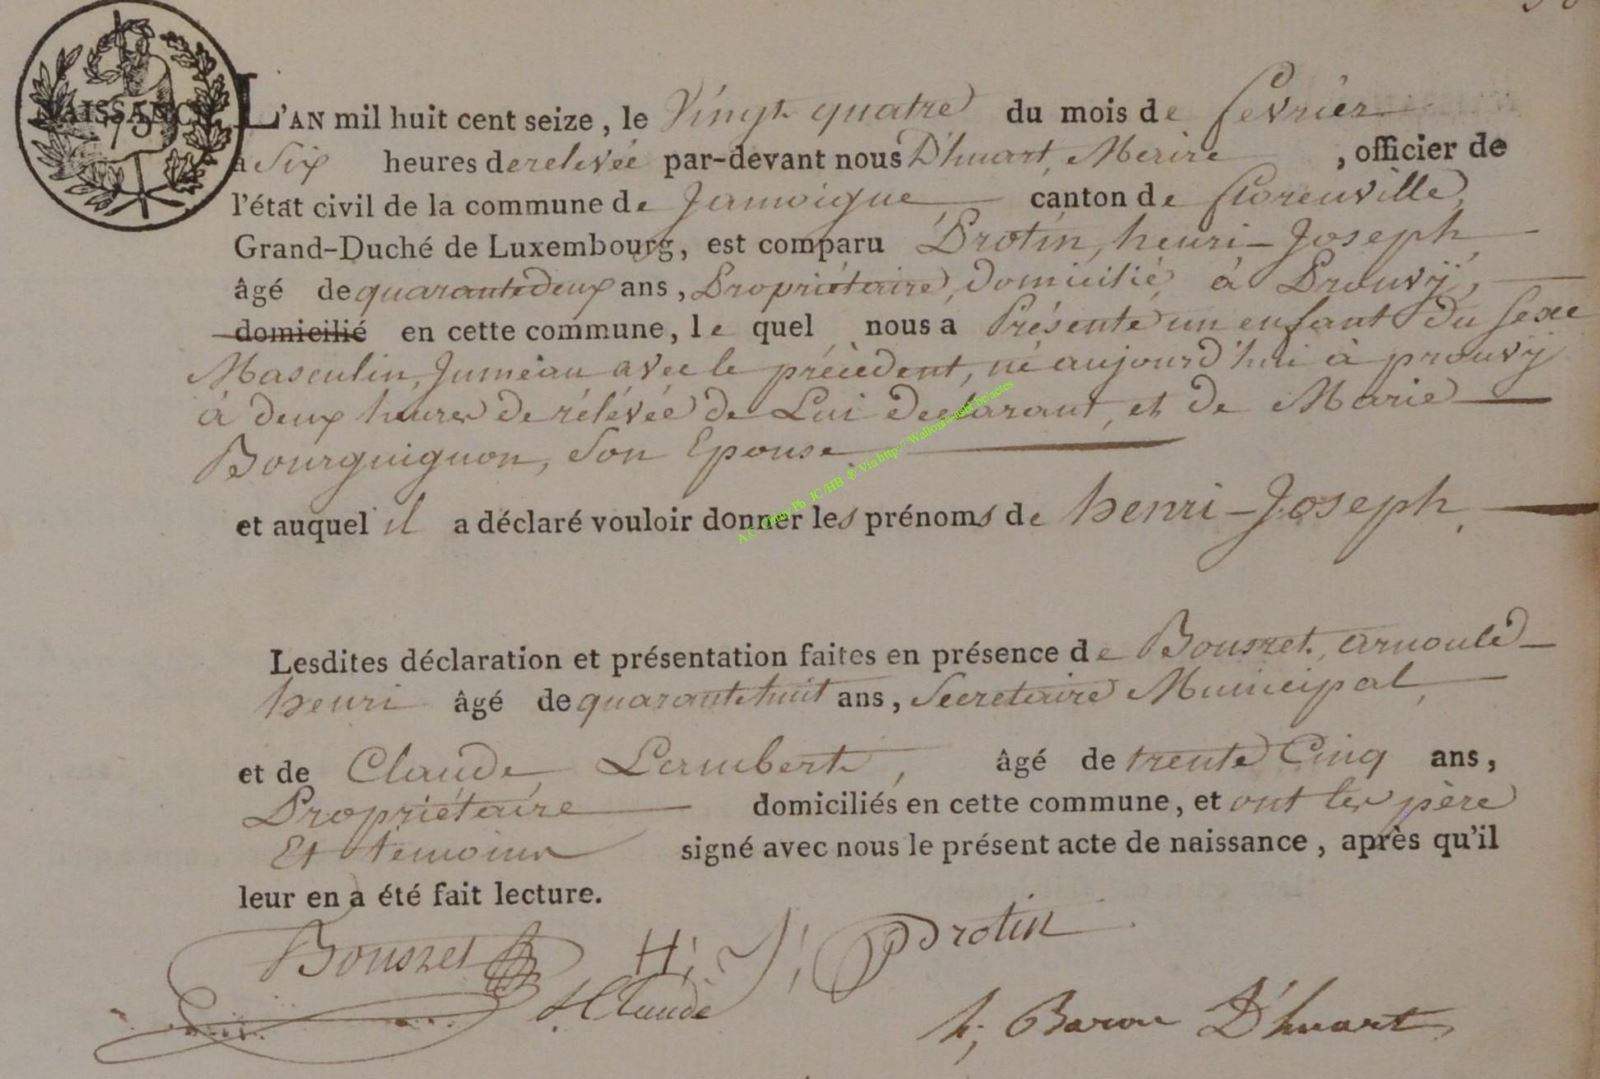 NAISSANCE
75
L'AN mil huit cent seize, le Vingt quatre du mois de fevrier
a Six heures de relevée par-devant nous D'huart, Maire, officier de
l'état civil de la commune de Jamoigne, canton de florenville,
Grand-Duché de Luxembourg, est comparu Protin, henri-Joseph
âgé de quarante deux ans, Propriétaire, Domicilié, à Prouvÿ,
domicilié en cette commune, le quel nous a Présenté un enfant Du Sexe
Masculin, Jumeau avec le précèdent, né aujourd'hui à prouvÿ
à deux heures de rélévée de Lui declarant, et de Marie
Bourguignon, Son Epouse
et auquel il a déclaré vouloir donner les prénoms de henri-Joseph
Lesdites déclaration et présentation faites en présence de Bousret, arnould
henri âgé de quarante huit ans, Secretaire Municipal,
et de Claude, Lambert, âgé de trente Cinq ans,
Propriétaire domiciliés en cette commune, et ont les père
Et témoins signé avec nous le présent acte de naissance, après qu'il
leur en a été fait lecture.
Bousret H; J; Protin
Claude
h; Baron D'huart